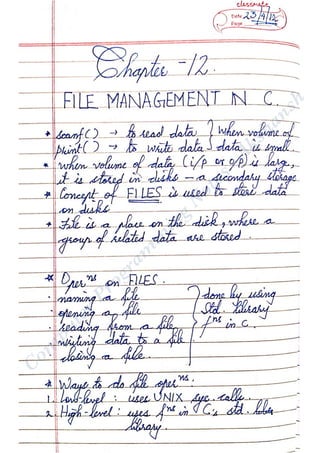 classmate
Date 23/9/12
Page
Chapter -12.
FILE MANAGEMENT IN C.
* scanf() → to read data } When volume of
printf() → to write data } data is small.
* when volume of data (i/p or o/p) is large,
it is stored in disks - a secondary storage
* Concept of FILES is used to store data
on disks
* File is a place on the disk, where a
group of related data are stored.
* Operns on FILES.
· naming a file
· opening a file
· reading from a file
· writing data to a file
· closing a file.
} done by using
Std. library
fns in C.
* Ways to do file operns.
1. Low-level : uses UNIX sys. calls.
2. High-level : uses fns in C's std.
library.